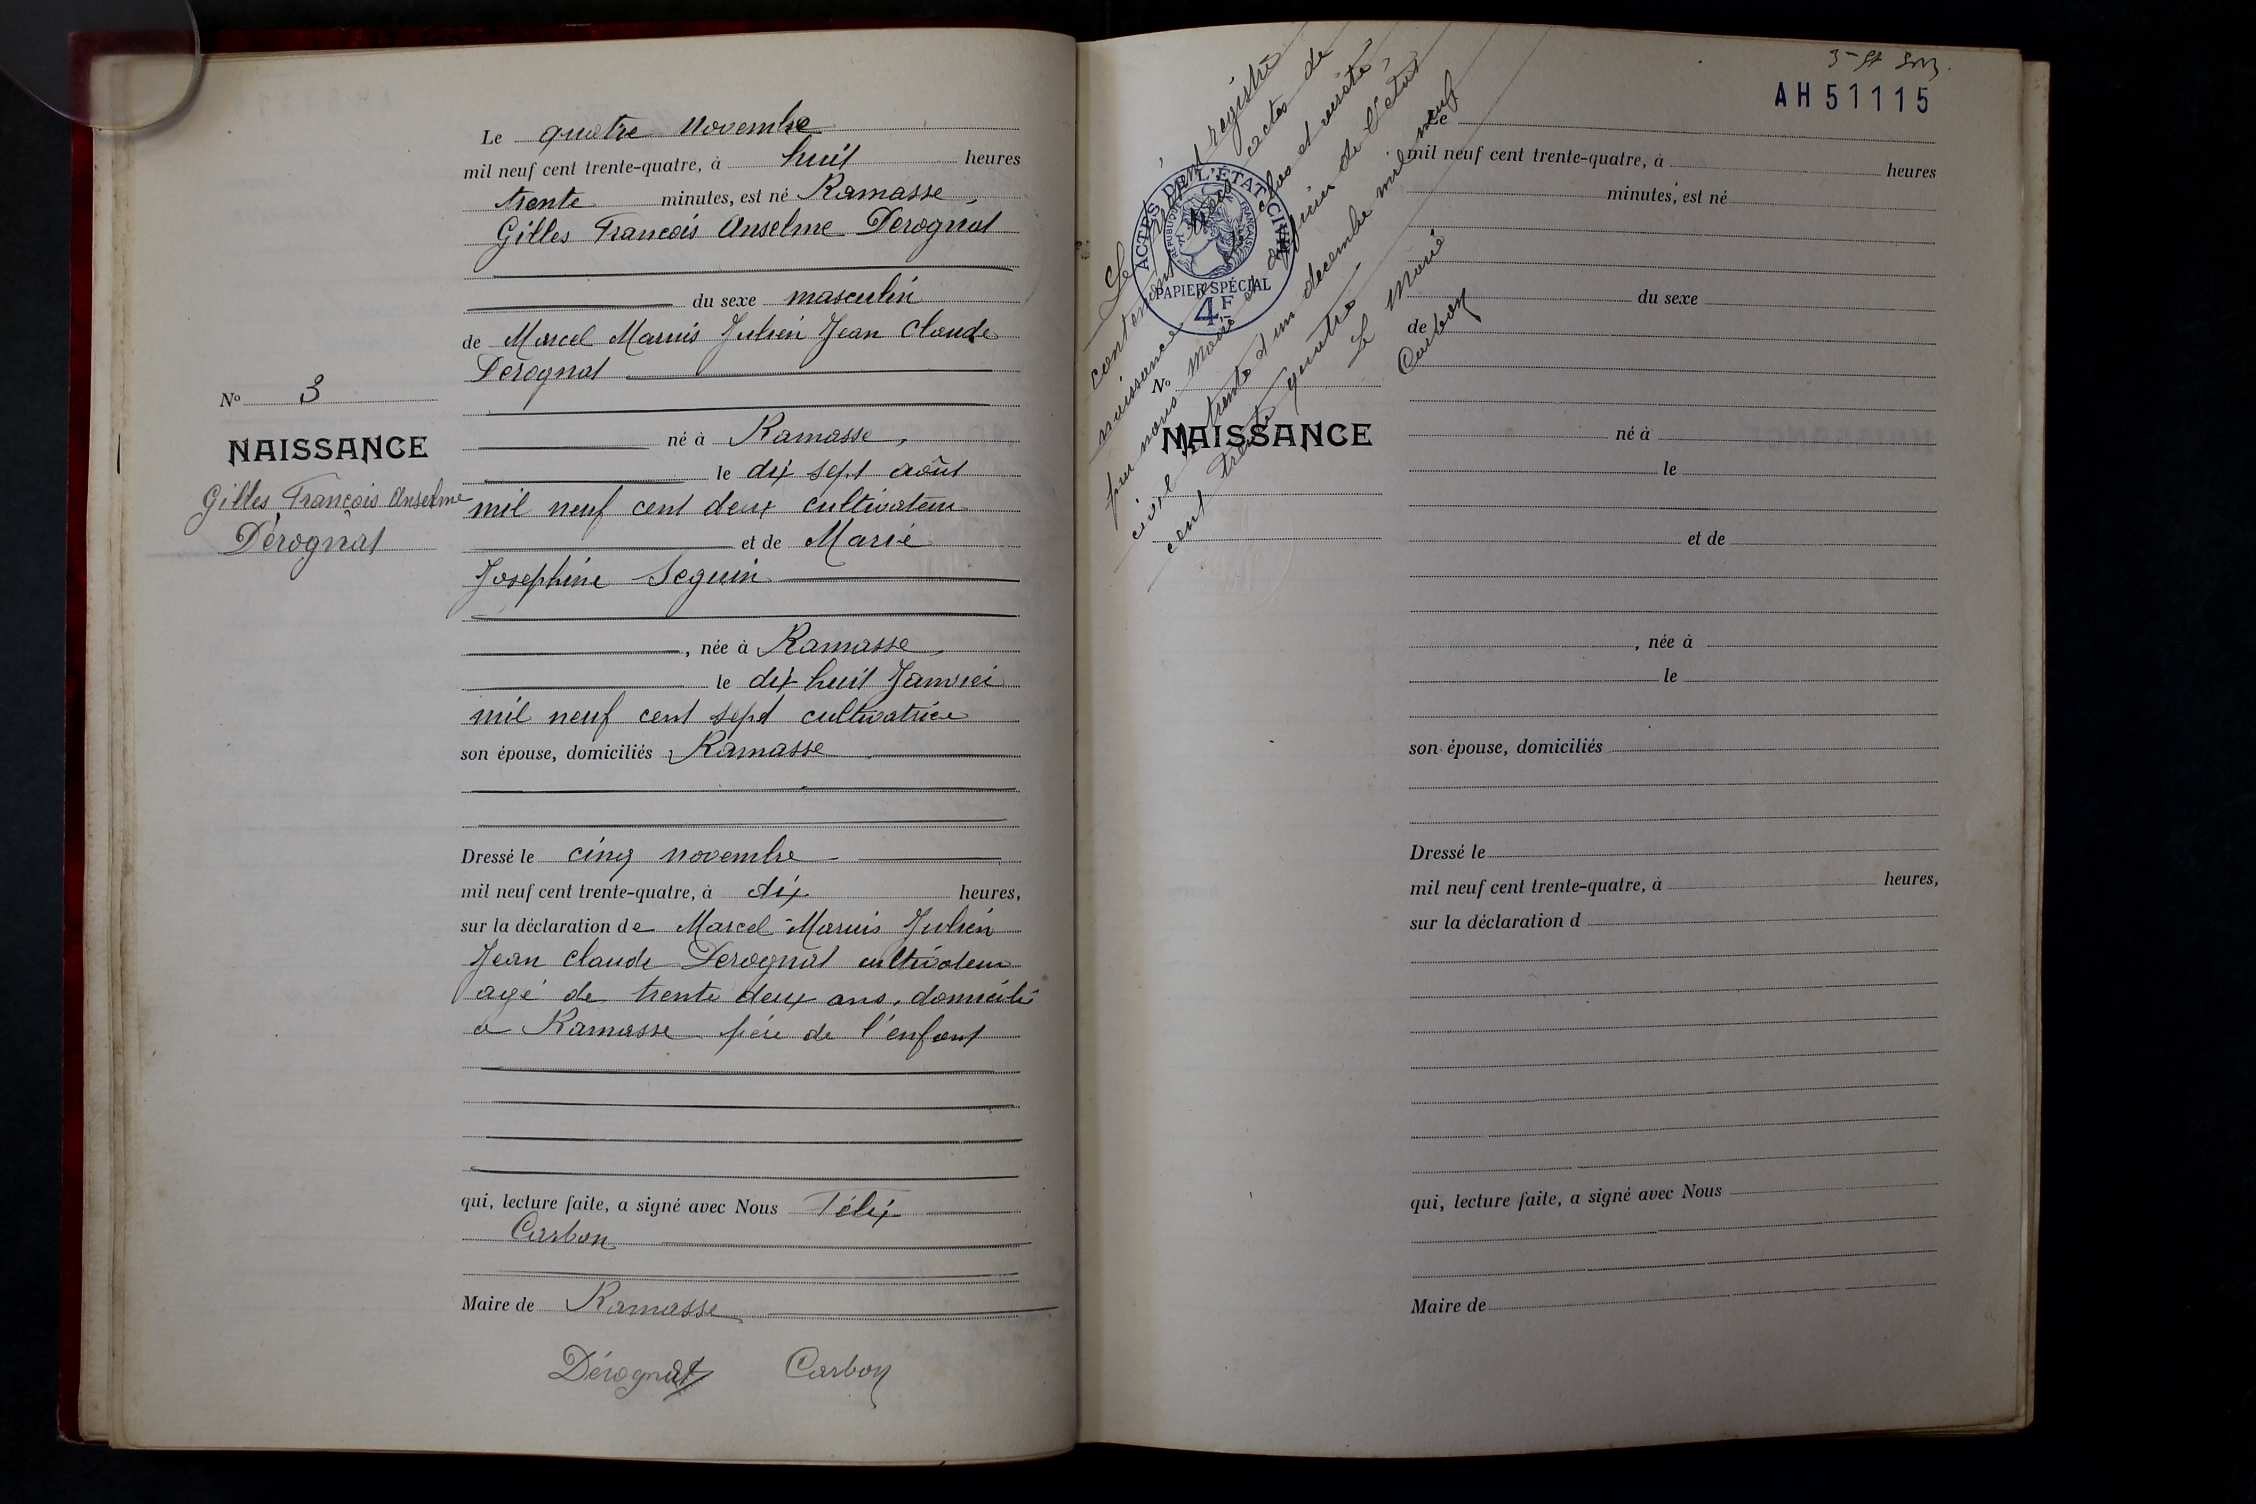 Le quatre novembre
mil neuf cent trente-quatre, à huit heures
trente minutes, est né Ramasse
Gilles François Anselme Dérognat
du sexe masculin
de Marcel Marius Julien Jean Claude
Dérognat
né à Ramasse,
le dix sept août
mil neuf cent deux cultivateur
et de Marie
Joséphine Seguin
, née à Ramasse,
le dix huit Janvier
mil neuf cent sept cultivatrice
son épouse, domiciliés à Ramasse
Dressé le cinq novembre
mil neuf cent trente-quatre, à dix heures,
sur la déclaration de Marcel Marius Julien
Jean Claude Dérognat cultivateur
agé de trente deux ans, domicilié
a Ramasse père de l'enfant
qui, lecture faite, a signé avec Nous Félix
Carbon
Maire de Ramasse
Dérognat Carbon
No 3
NAISSANCE
Gilles François Anselme
Dérognat
AH51115
Le présent registre
contenant trois actes de
naissance a été clos et arrêté,
par nous Maire et officier de l'état
civil le trente et un decembre mil neuf
cent trente quatre
Le Maire
Carbon
ACTES DE L'ETAT CIVIL
REPUBLIQUE FRANÇAISE
PAPIER SPÉCIAL
4F
No
NAISSANCE
Le
mil neuf cent trente-quatre, à heures
minutes, est né
du sexe
de
né à
le
et de
, née à
le
son épouse, domiciliés
Dressé le
mil neuf cent trente-quatre, à heures,
sur la déclaration d
qui, lecture faite, a signé avec Nous
Maire de